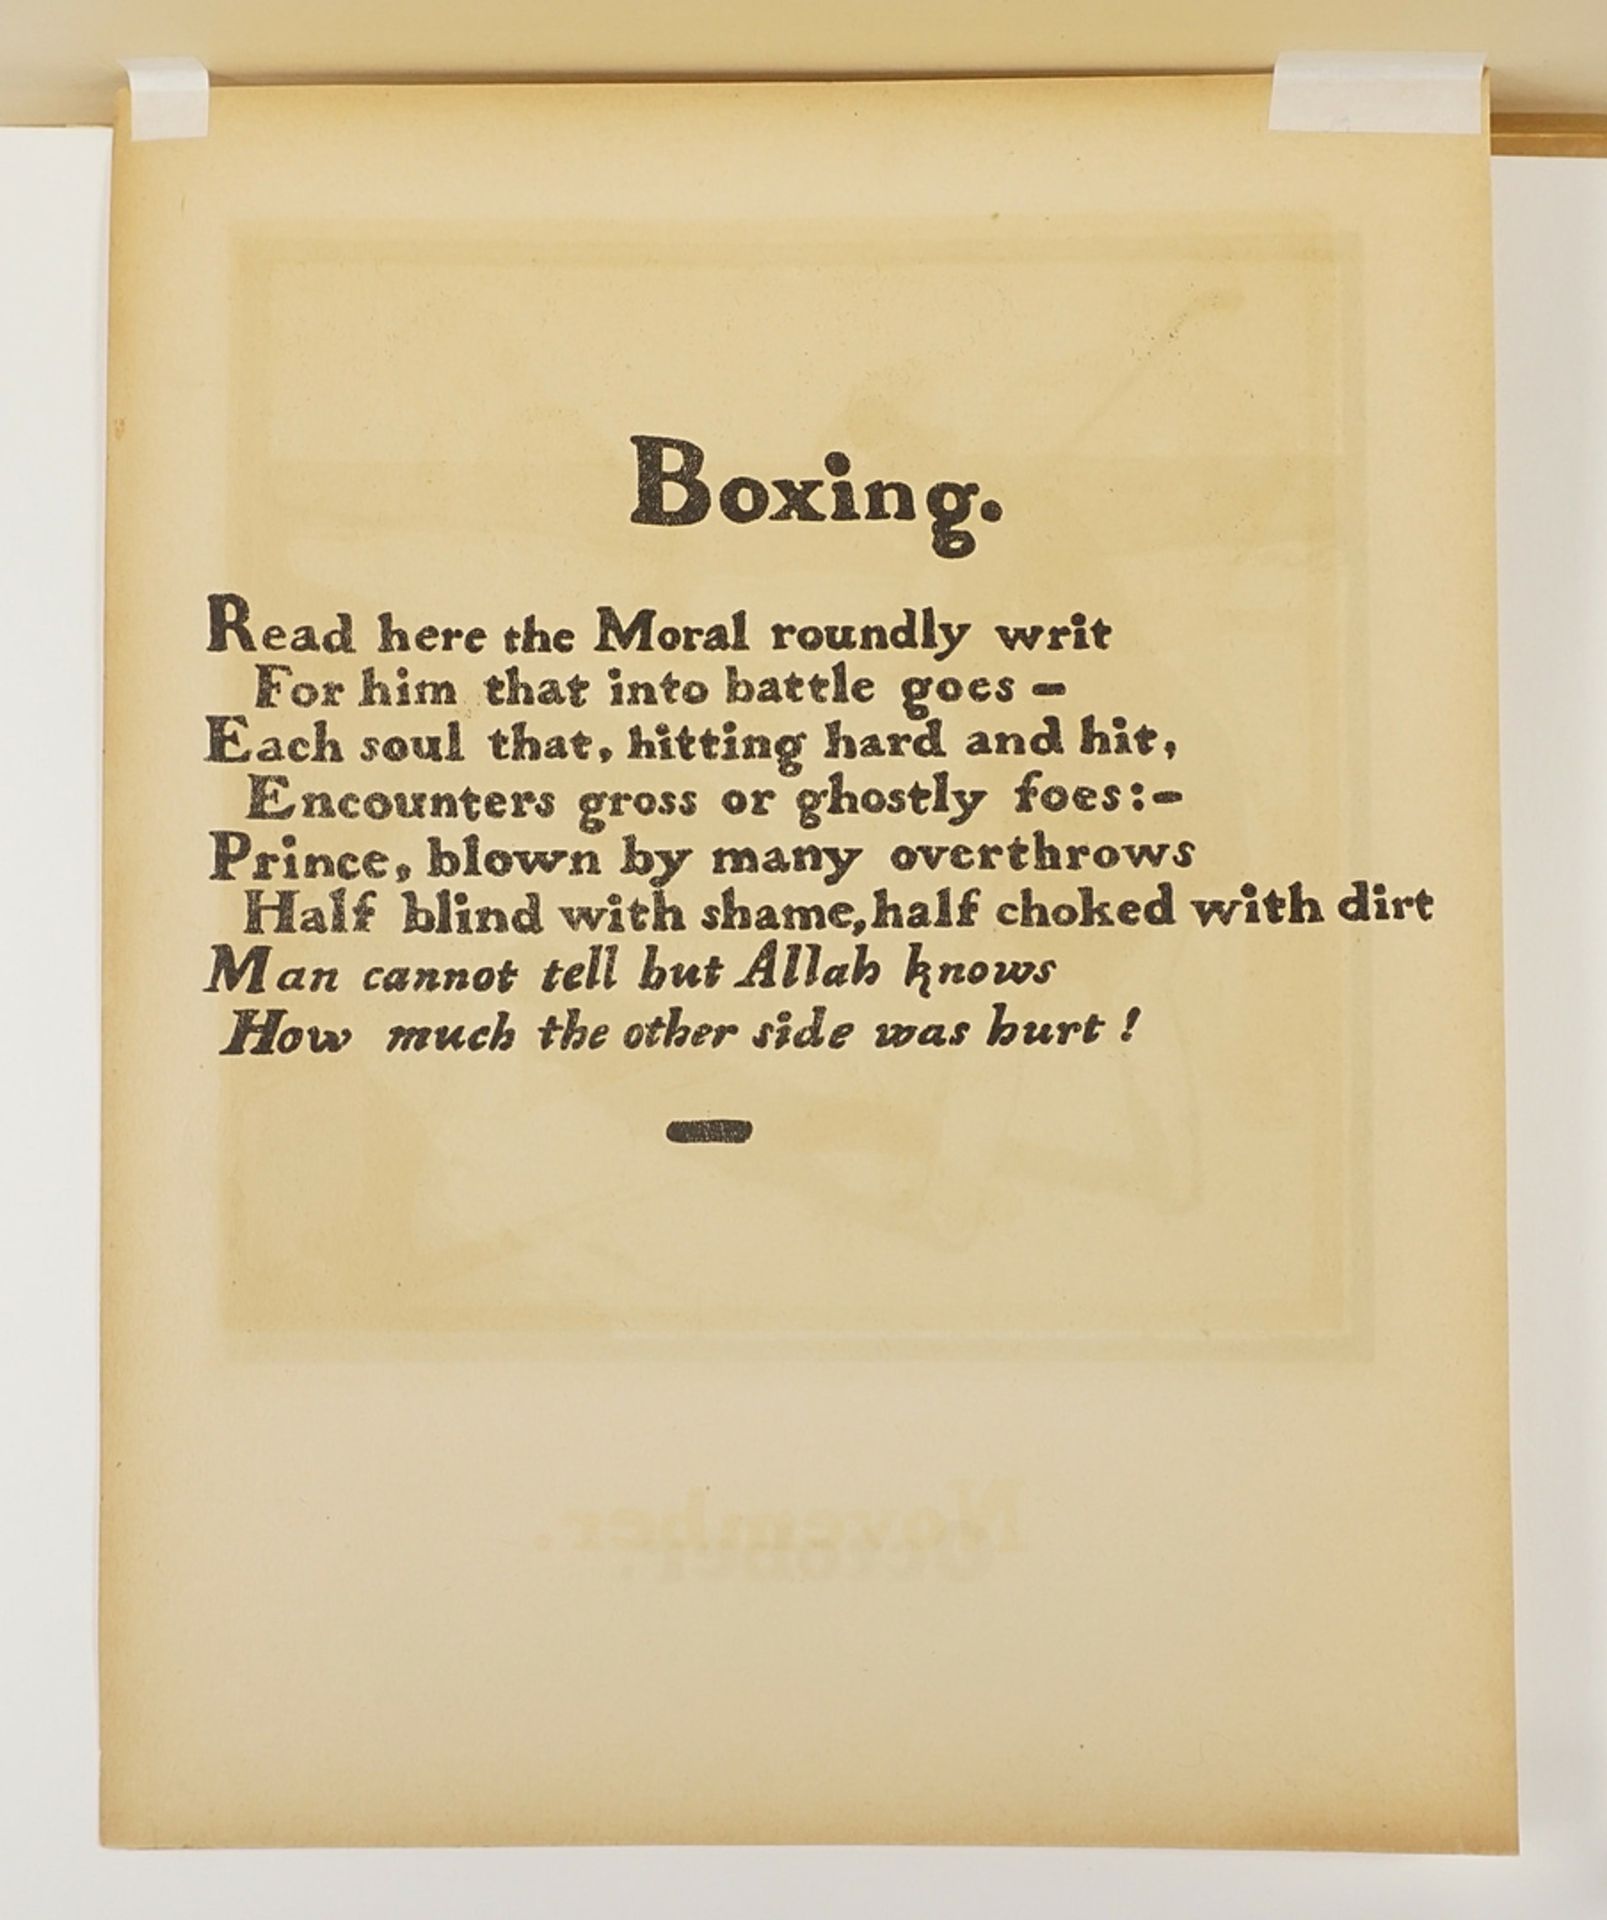 Boxing.
Read here the Moral roundly writ
For him that into battle goes –
Each soul that, hitting hard and hit,
Encounters gross or ghostly foes:–
Prince, blown by many overthrows
Half blind with shame, half choked with dirt
Man cannot tell but Allah knows
How much the other side was hurt!
November.
October.